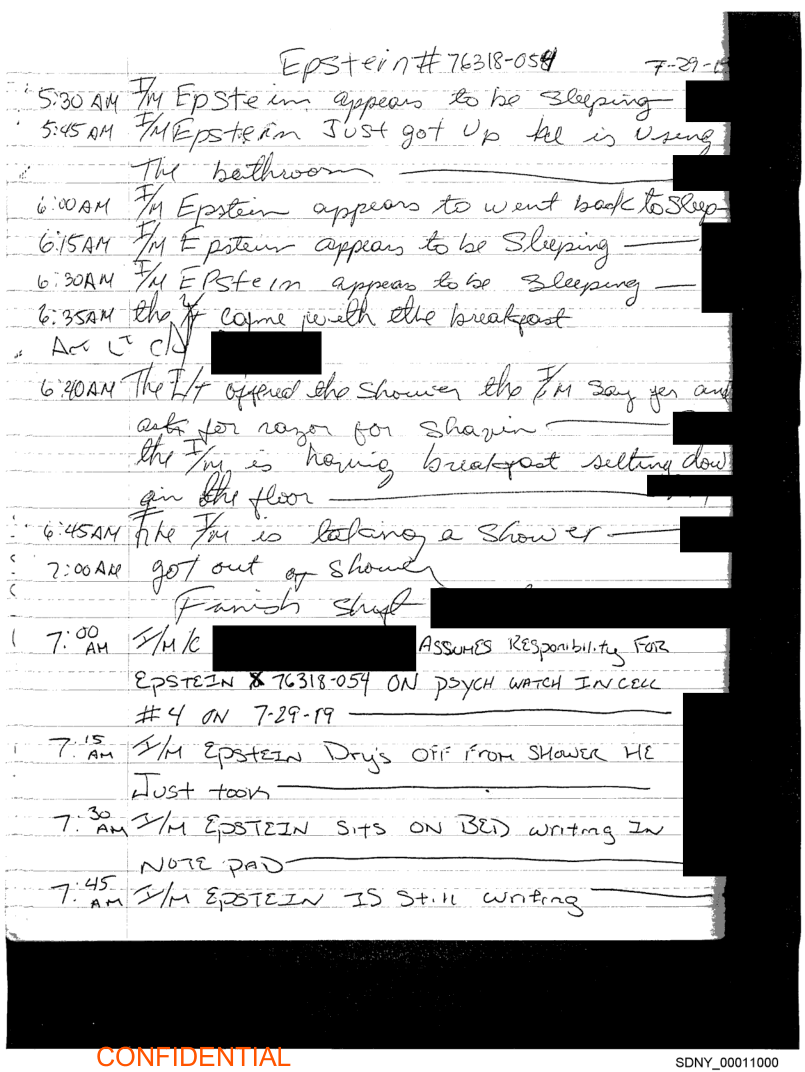 Epstein # 76318-054 7-29-19
5:30 AM I/M Epstein appears to be sleeping
5:45 AM I/M Epstein Just got Up he is Using
The bathroom
6:00 AM I/M Epstein appears to went back to Sleep
6:15 AM I/M Epstein appears to be Sleeping
6:30 AM I/M Epstein appears to be sleeping
6:35 AM the came with the breakfast
LT
6:40 AM The L/t offered the shower the I/M say yes and
ask for razor for shavin
the I/M is having breakfast setting dow
in the floor
6:45 AM the I/M is taking a shower
7:00 AM got out of shower
Finish Shift
7:00 AM I/M/C ASSUMES RESponibility FOR
EPSTEIN # 76318-054 ON PSYCH WATCH IN CELL
#4 ON 7-29-19
7:15 AM I/M EPSTEIN Dry's OFF FROM SHOWER HE
Just took
7:30 AM I/M EPSTEIN Sits ON BED writing IN
NOTE PAD
7:45 AM I/M EPSTEIN IS Still writing
CONFIDENTIAL
SDNY_00011000